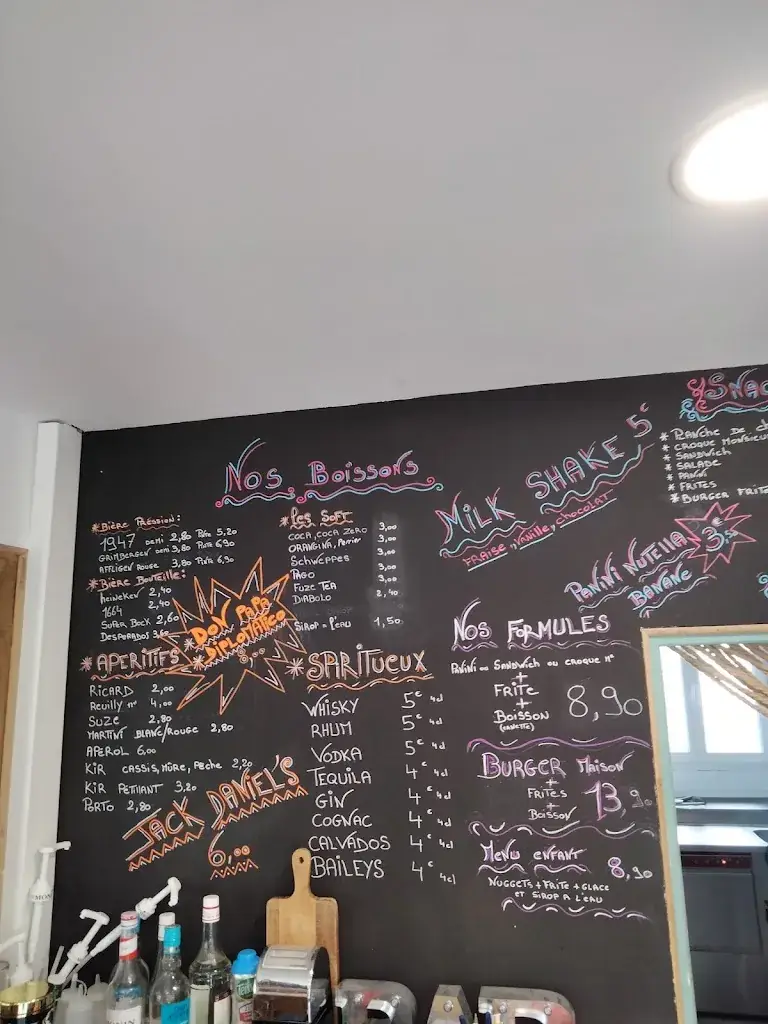 Nos Boissons
*Bière Pression:
1947 demi 2,80 Pinte 5,20
GRIMBERGEN demi 3,80 Pinte 6,90
AFFLIGEN ROUGE 3,80 Pinte 6,90
*Bière Bouteille:
heineken 2,40
1664 2,40
SUPER BOCK 2,60
DESPORADOS 3,60
DON PAPA
DIPLOMATICO
*APERITIFS*
RICARD 2,00
Reuilly 4,00
SUZE 2,80
MARTINI BLANC/ROUGE 2,80
APEROL 6,00
KIR CASSIS, MÛRE, PECHE 2,20
KIR PETILLANT 3,20
PORTO 2,80
JACK DANIEL'S
6,00
*Les SOFT
COCA, COCA ZERO 3,00
ORANGINA, Perrier 3,00
Schweppes 3,00
PAGO 3,00
FUZE TEA 3,00
DIABOLO 2,40
SIROP à l'eau 1,50
*SPIRITUEUX
WHISKY 5€ 4cl
RHUM 5€ 4cl
VODKA 5€ 4cl
TEQUILA 4€ 4cl
GIN 4€ 4cl
COGNAC 4€ 4cl
CALVADOS 4€ 4cl
BAILEYS 4€ 4cl
MILK SHAKE 5€
FRAISE, vanille, chocolat
PANINI NUTELLA
BANANE
3€50
Nos FORMULES
PANINI ou SANDWICH ou CROQUE Mr
+
FRITE
+
BOISSON
(CANETTE)
8,90
BURGER Maison
+
FRITES
+
BOISSON
13,90
Menu enfant 8,90
NUGGETS + FRITE + GLACE
ET SIROP A L'EAU
* PLANCHE DE
* CROQUE MONSIEUR
* SANDWICH
* SALADE
* PANINI
* FRITES
* BURGER